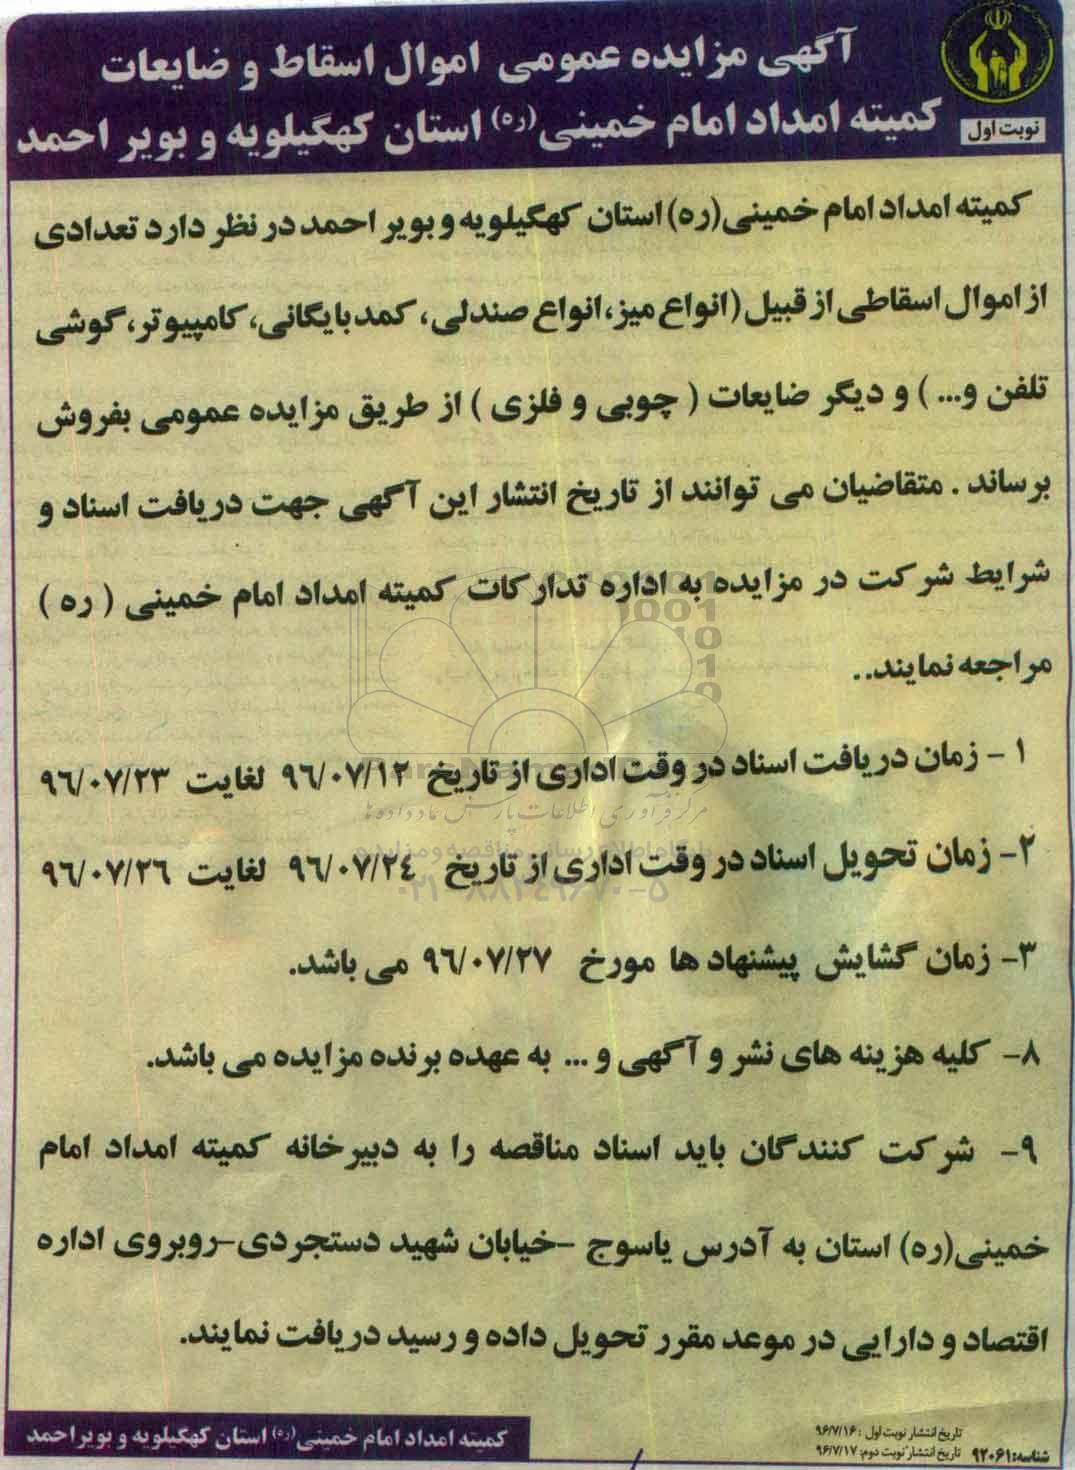 آگهی مزایده عمومی اموال اسقاط و ضایعات
کمیته امداد امام خمینی(ره) استان کهگیلویه و بویر احمد
نوبت اول
کمیته امداد امام خمینی(ره) استان کهگیلویه و بویر احمد در نظر دارد تعدادی
از اموال اسقاطی از قبیل (انواع میز، انواع صندلی، کمد بایگانی، کامپیوتر، گوشی
تلفن و... ) و دیگر ضایعات ( چوبی و فلزی ) از طریق مزایده عمومی بفروش
برساند . متقاضیان می توانند از تاریخ انتشار این آگهی جهت دریافت اسناد و
شرایط شرکت در مزایده به اداره تدارکات کمیته امداد امام خمینی ( ره )
مراجعه نمایند..
۱ - زمان دریافت اسناد در وقت اداری از تاریخ ۹۶/۰۷/۱۲ لغایت ۹۶/۰۷/۲۳
مرکز فرآوری اطلاعات پارس نماد داده ها
۲- زمان تحویل اسناد در وقت اداری از تاریخ ۹۶/۰۷/۲۴ لغایت ۹۶/۰۷/۲۶
۰۲۱-۸۸۳۴۹۶۷۰-۵
۳- زمان گشایش پیشنهاد ها مورخ ۹۶/۰۷/۲۷ می باشد.
۸- کلیه هزینه های نشر و آگهی و ... به عهده برنده مزایده می باشد.
۹- شرکت کنندگان باید اسناد مناقصه را به دبیرخانه کمیته امداد امام
خمینی(ره) استان به آدرس یاسوج -خیابان شهید دستجردی-روبروی اداره
اقتصاد و دارایی در موعد مقرر تحویل داده و رسید دریافت نمایند.
تاریخ انتشار نوبت اول : ۹۶/۷/۱۶
شناسه: ۹۲۰۶۱ تاریخ انتشار نوبت دوم: ۹۶/۷/۱۷
کمیته امداد امام خمینی(ره) استان کهگیلویه و بویراحمد